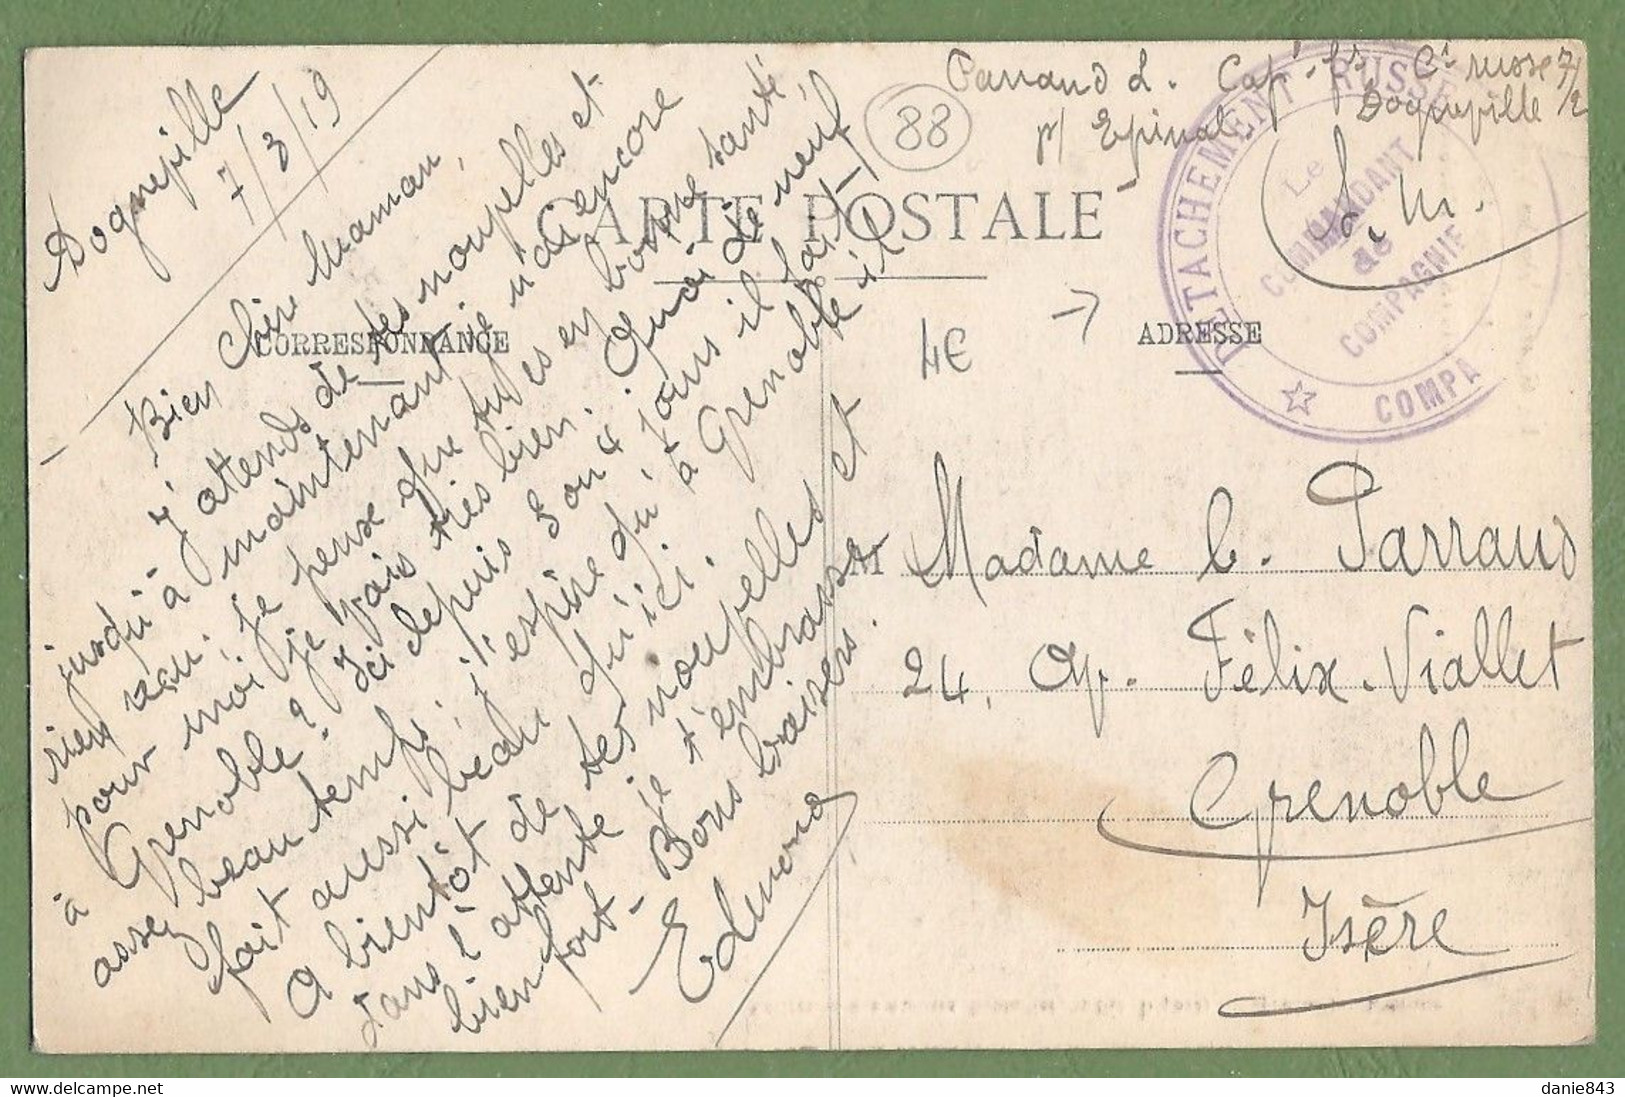 Parraud L. Cap¹ Cⁱᵉ russe 7/2
p/ Epinal Dogneville
88
S.M.
DETACHEMENT RUSSE
Le
COMMANDANT
de
COMPAGNIE
COMPA
CARTE POSTALE
CORRESPONDANCE
ADRESSE
4€
Dogneville
7/3/19
Bien chère maman,
J'attends de tes nouvelles et
jusqu'à maintenant je n'ai encore
rien reçu. Je pense que tu es en bonne santé,
pour moi je vais très bien. Quoi de neuf
à Grenoble? Ici depuis 3 ou 4 jours il fait
assez beau temps, j'espère qu'à Grenoble il
fait aussi beau qu'ici.
A bientôt de tes nouvelles et
dans l'attente je t'embrasse
bien fort - Bons baisers.
Edmond
M Madame C. Parraud
24, Av. Félix-Viallet
Grenoble
Isère
danie843